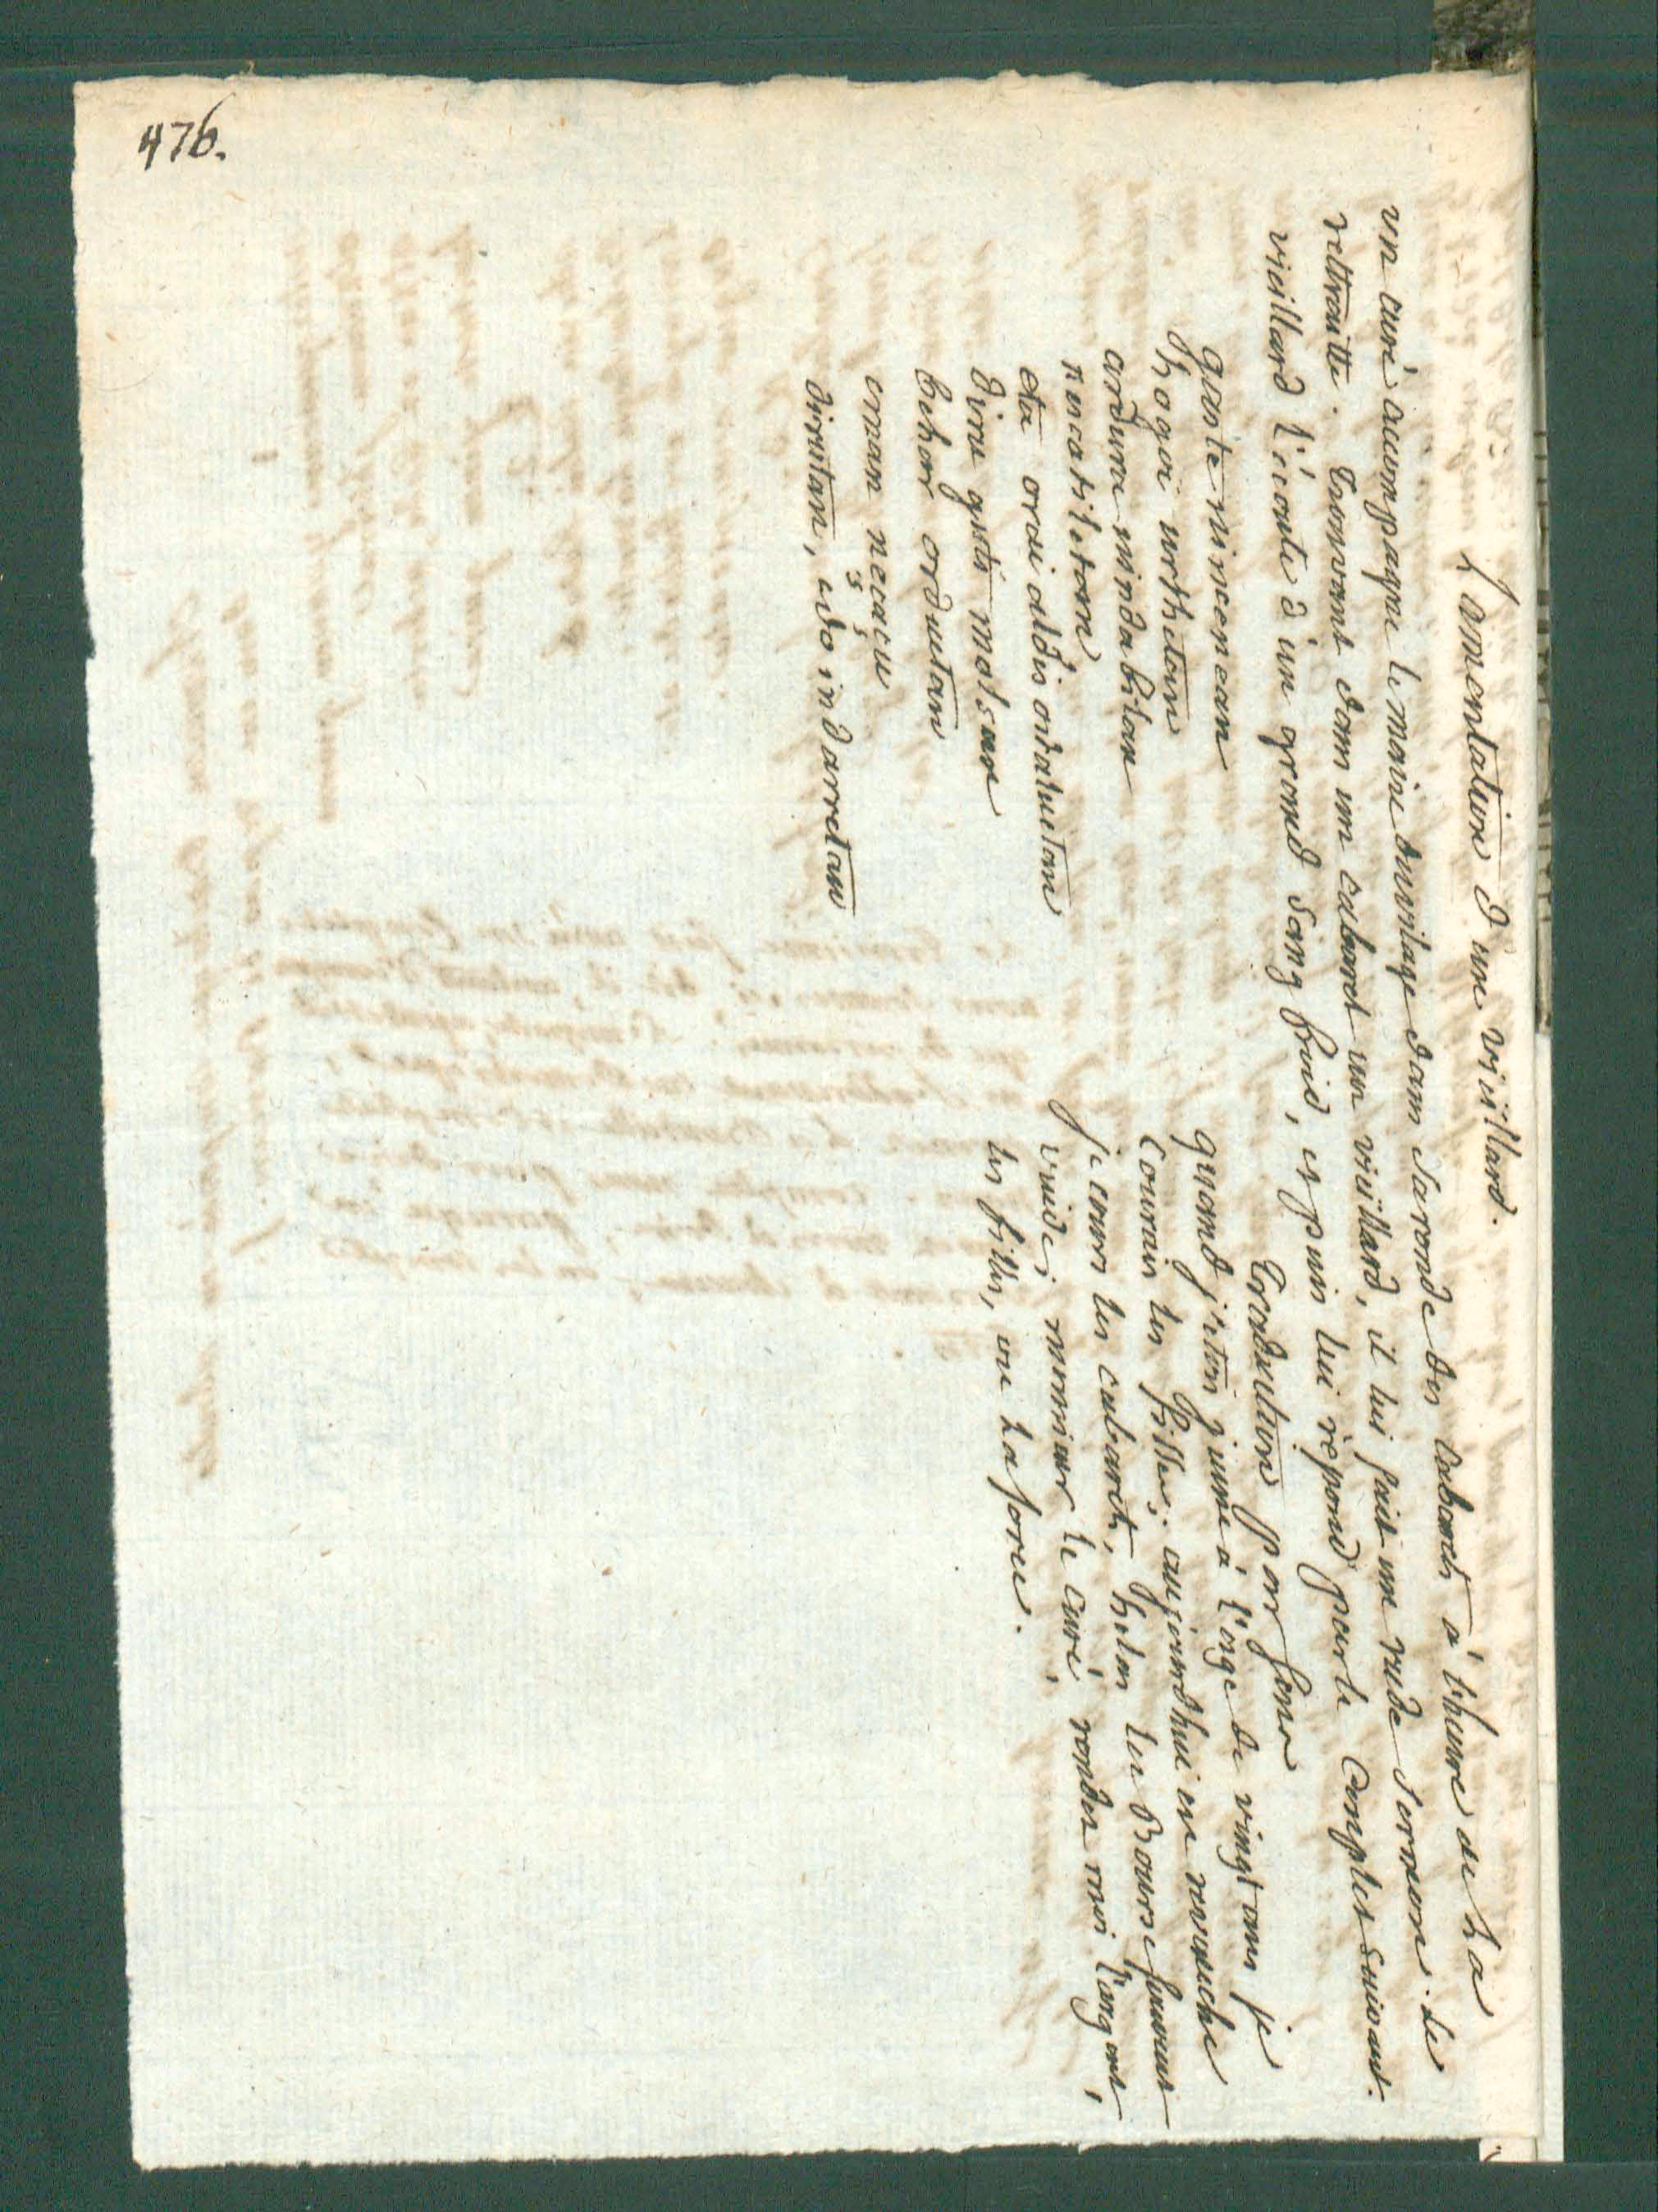 476.
Lamentation d'un vieillard.
un curé accompagne le maire du vilage dans sa ronde des Cabarets à l'heure de la
rettraitte. Trouvant dans un cabaret un vieillard, il lui fait un rude sermon. le
vieillard l'écoute d'un grand sang froid, et puis lui répond par le Couplet suivant.
gaste nincenean
hogoi urthetan
ardura nindabilan
nescatiletan
eta orai aldis ostatuetan
diru guti moltsan
behar orduetan
eman neçaçu
dirutan, edo indarretan
Traduction par sens
quand j'etois jeune à l'age de vingt ans je
Courais les filles; aujourdhui en revanche
je cours les cabarets, helas la Bourse souvent
vuide; monsieur le curé, rendez moi l'argent,
les filles, ou la force.